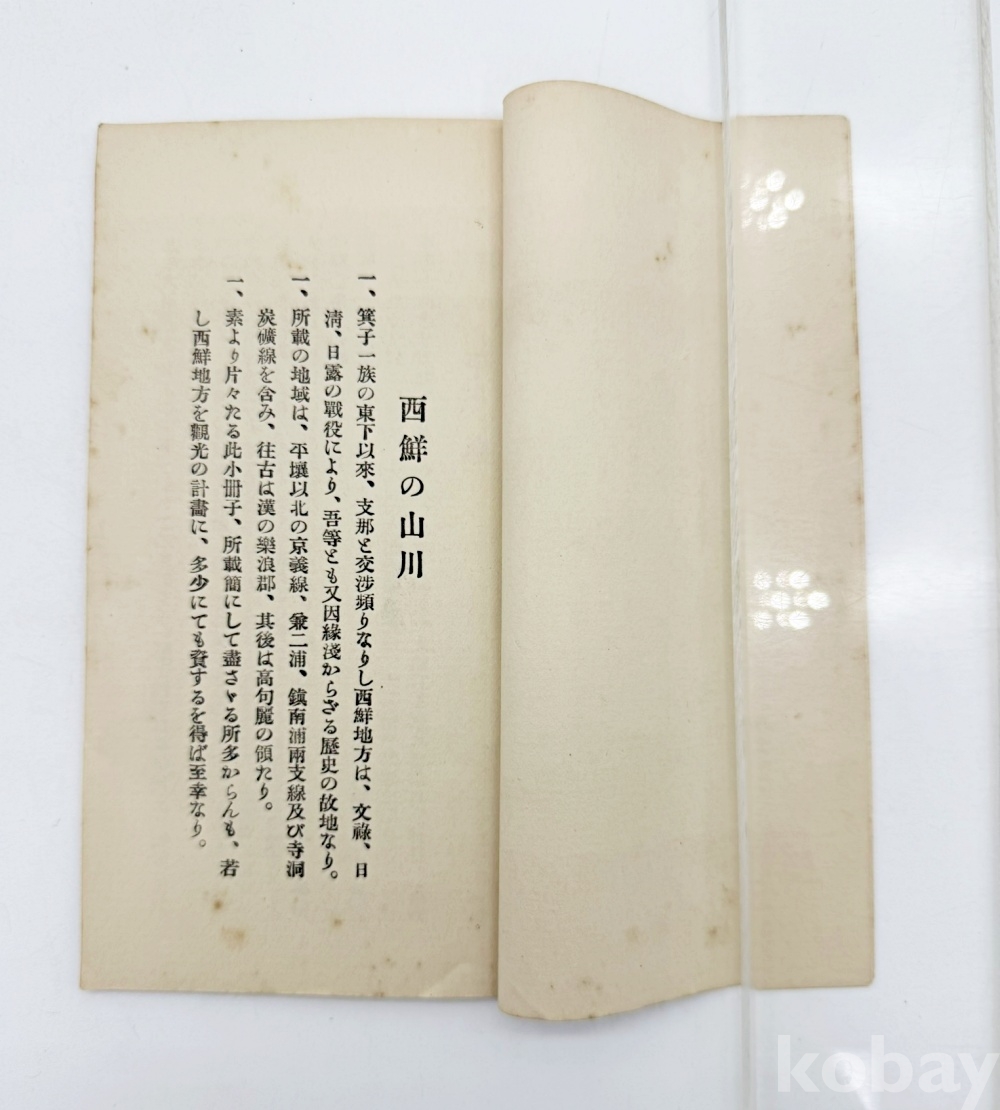 西鮮の山川
一、箕子一族の東下以來、支那と交涉頻りなりし西鮮地方は、文祿、日
淸、日露の戰役により、吾等とも又因緣淺からざる歷史の故地なり。
一、所載の地域は、平壤以北の京義線、兼二浦、鎭南浦兩支線及び寺洞
炭礦線を含み、往古は漢の樂浪郡、其後は高句麗の領たり。
一、素より片々たる此小冊子、所載簡にして盡さゞる所多からんも、若
し西鮮地方を觀光の計畵に、多少にても資するを得ば至幸なり。
kobay